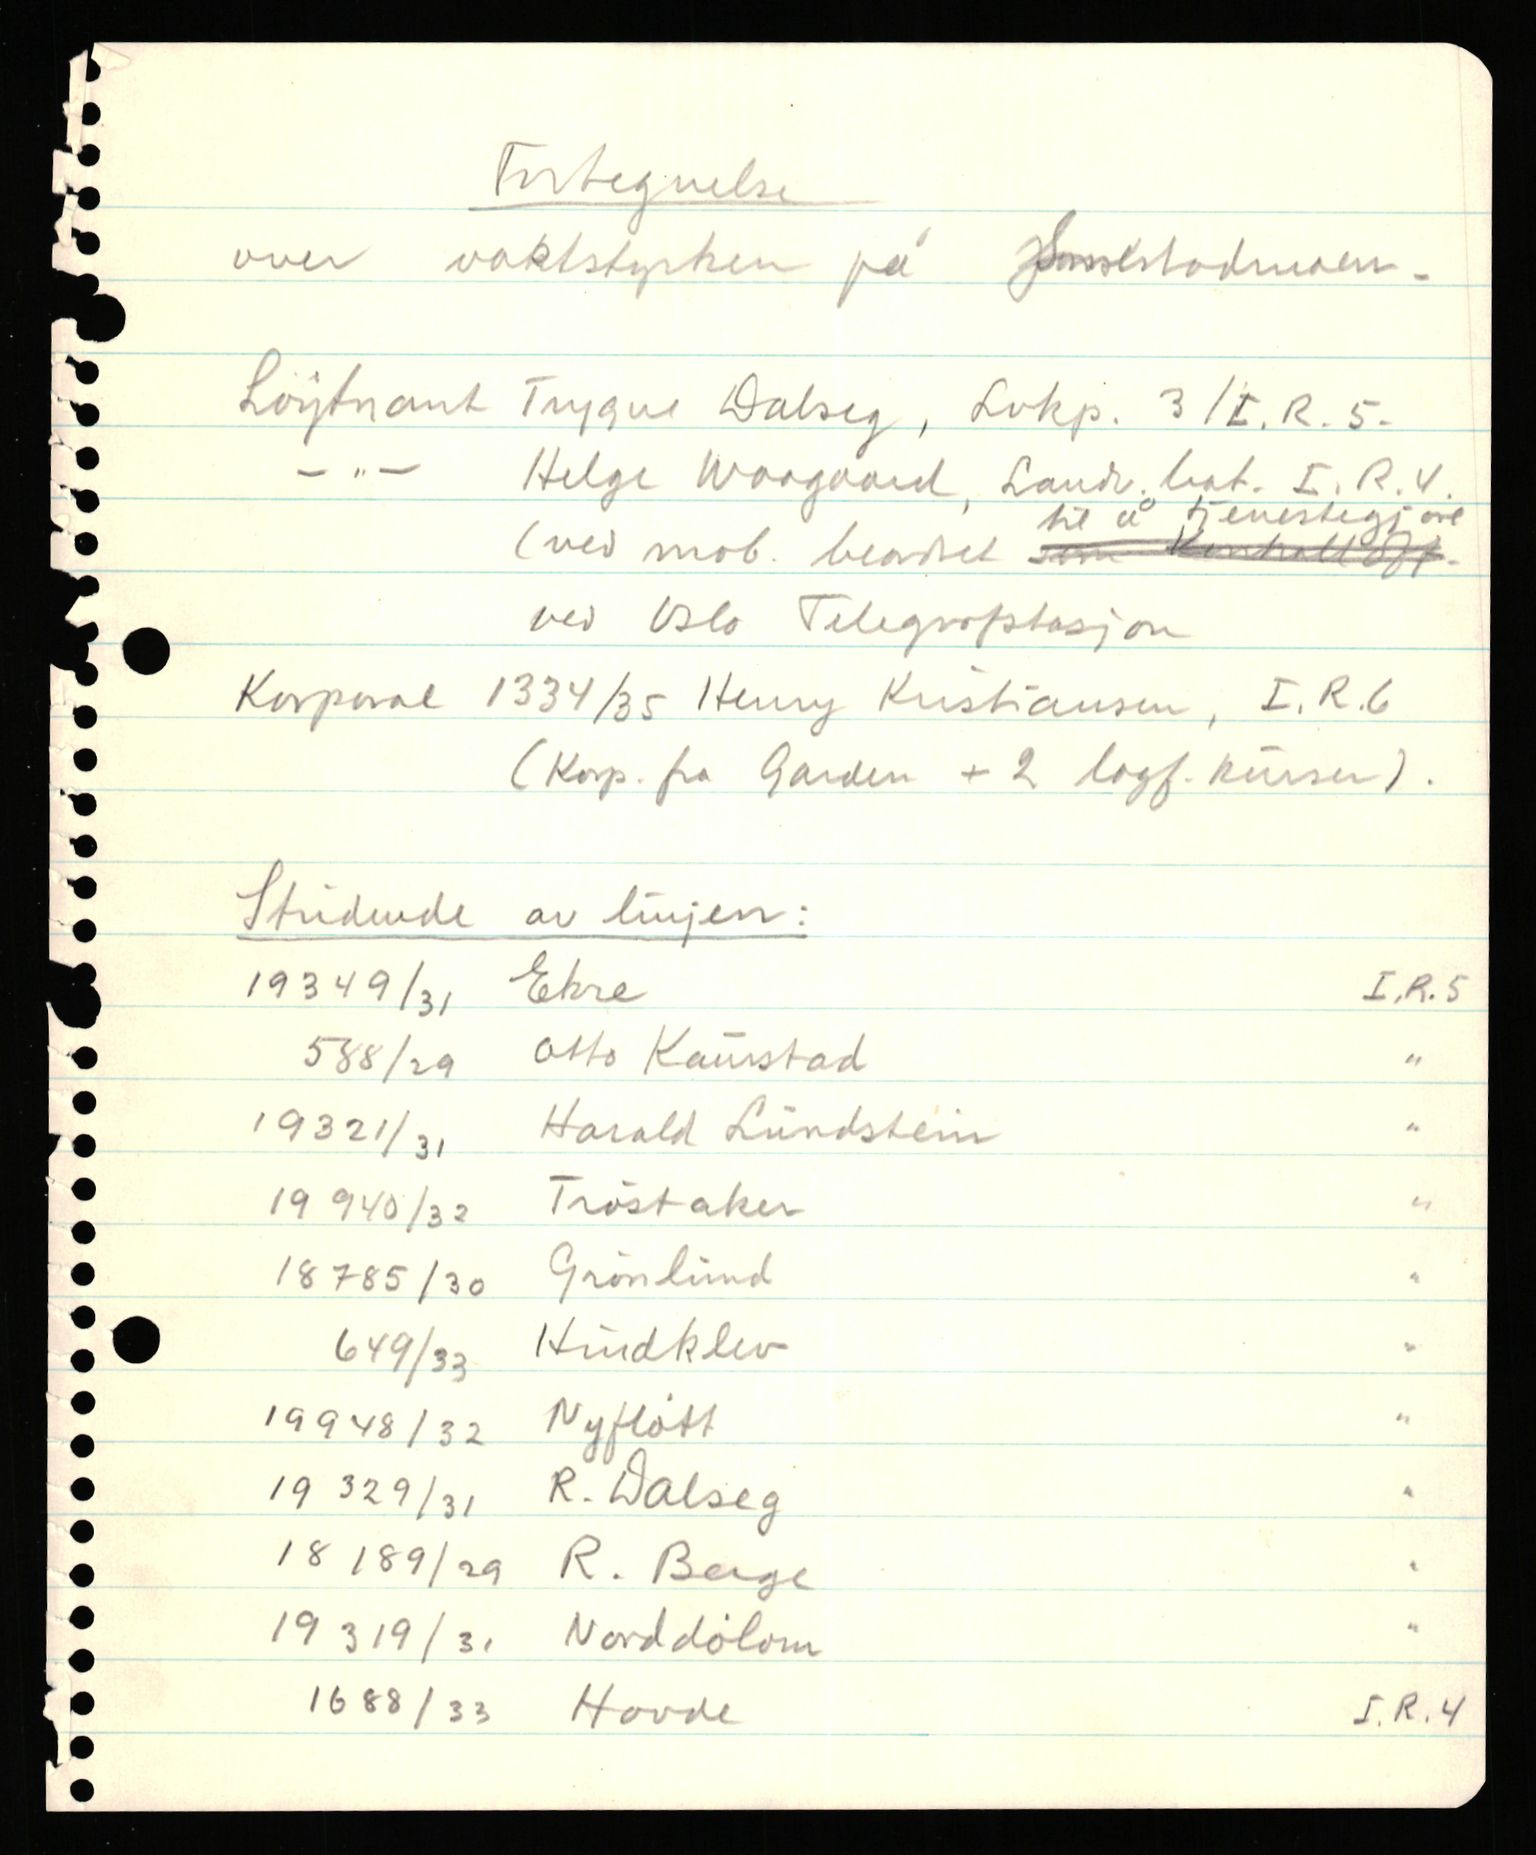 Fortegnelse
over vaktstyrken på Jonsrstadmoen.
Löytnant Trygve Dalseg, Lvkp. 3/I.R. 5.
— " — Helge Waagaard, Landv. bat. I.R.4.
til å tjenestegjøre
(ved mob. beordret som Kontroll Off.
ved Oslo Telegrafstasjon
Korporal 1334/35 Henry Kristiansen, I.R.6
(Korp. fra Garden + 2 lagf. kurser).
Studende av linjen:
19349/31 Ekre I.R.5
588/29 Otto Kaurstad "
19321/31 Harald Lundstein "
19940/32 Tröstaker "
18785/30 Grönlund "
649/33 Hindklev "
19948/32 Nyflött "
19329/31 R. Dalseg "
18189/29 R. Berge "
19319/31 Norddölom "
1688/33 Hovde I.R.4